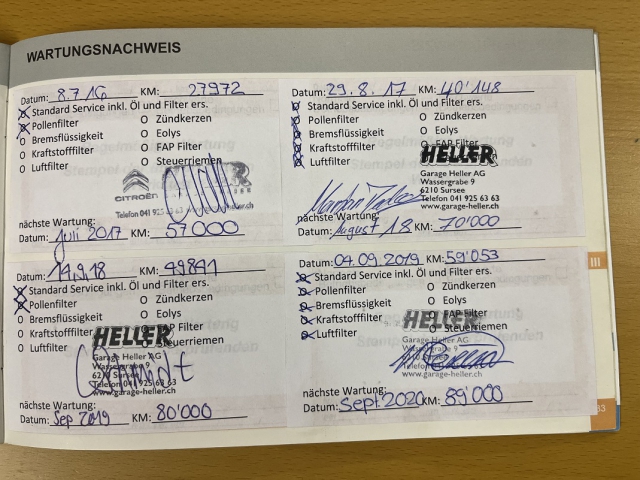 WARTUNGSNACHWEIS
Datum: 8.7.16 KM: 27972
Standard Service inkl. Öl und Filter ers.
Pollenfilter O Zündkerzen
Bremsflüssigkeit O Eolys
Kraftstofffilter O FAP Filter
Luftfilter O Steuerriemen
CITROËN
Telefon 041 925 63 63
nächste Wartung:
Datum: Juli 2017 KM: 57000
Datum: 29.8.17 KM: 40'148
Standard Service inkl. Öl und Filter ers.
Pollenfilter O Zündkerzen
Bremsflüssigkeit O Eolys
Kraftstofffilter O FAP Filter
Luftfilter
HELLER
Garage Heller AG
Wassergrabe 9
6210 Sursee
Telefon 041 925 63 63
www.garage-heller.ch
nächste Wartung:
Datum: August 18 KM: 70'000
Datum: 14.9.18 KM: 49841
Standard Service inkl. Öl und Filter ers.
Pollenfilter O Zündkerzen
Bremsflüssigkeit O Eolys
Kraftstofffilter O FAP Filter
Luftfilter Steuerriemen
HELLER
Garage Heller AG
Wassergrabe 9
6210 Sursee
Telefon 041 925 63 63
www.garage-heller.ch
nächste Wartung:
Datum: Sep 2019 KM: 80'000
Datum: 04.09.2019 KM: 59'053
Standard Service inkl. Öl und Filter ers.
Pollenfilter O Zündkerzen
Bremsflüssigkeit O Eolys
Kraftstofffilter O FAP Filter
Luftfilter Steuerriemen
HELLER
Garage Heller AG
Wassergrabe 9
6210 Sursee
Telefon
www.garage-heller.ch
nächste Wartung:
Datum: Sept 2020 KM: 89'000
III